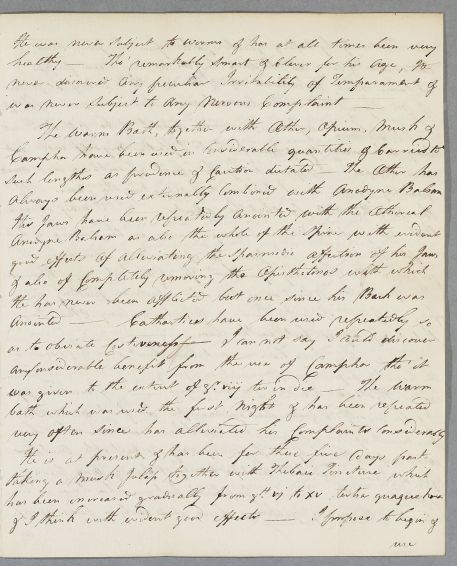 He was never subject to worms & has at all times been very
healthy — Tho remarkably smart & clever for his age, I
never discovered any peculiar Irritability of Temperament &
was never subject to any Nervous Complaint —
The Warm Bath, together with Æther, Opium, Musk &
Camphor have been used in considerable quantities & carried to
such lengths as prudence & caution dictated — The Æther has
always been used externally combined with Anodyne Balsam
His Jaws have been repeatedly anointed with the Æthereal
Anodyne Balsam as also the whole of the Spine with evident
good effects of alleviating the Spasmodic affection of his Jaws
& also of completely removing the Opisthotonos with which
he has never been afflicted but once since his Back was
anointed — Cathartics have been used repeatedly so
as to obviate Costiveness — I can not say I could discover
any considerable benefit from the use of Camphor tho' it
was given to the extent of ter in die — The Warm
bath which was used the first Night & has been repeated
very often since has alleviated his Complaints considerably
He is at present & has been for these five days past
taking a Musk Julap together with Thebaic Tincture which
has been increased gradually from gtt vi to xv
& I think with evident good effects — I propose to begin of
use